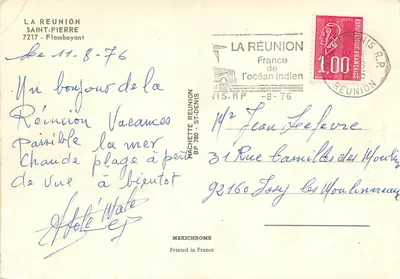 LA REUNION
SAINT-PIERRE
7217 - Flamboyant
Le 11-8-76
Un bonjour de la
Réunion Vacances
paisible la mer
Chaude plage à perte
de vue à bientôt
HACHETTE REUNION
BP 780 - ST-DENIS
LA RÉUNION
France
de
l'océan indien
ÉPUBLIQUE FRANÇAISE
1,00
IS R.P.
RÉUNION
IS.R.P -8-76
Mr Jean Lefevre
31 Rue Camilles des Moulins
92160 Issy les Moulineaux
MEXICHROME
Printed in France